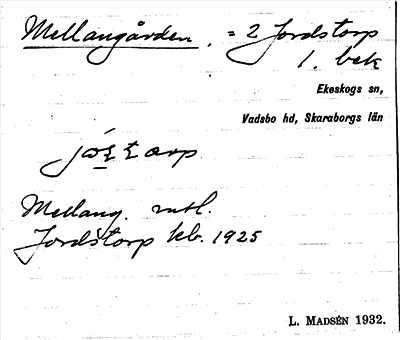 Mellangården, = 2 Jordstorp
1. bek
Ekeskogs sn,
Vadsbo hd, Skaraborgs län
Mellang. mtl.
Jordstorp kb. 1925
L. MADSÉN 1932.